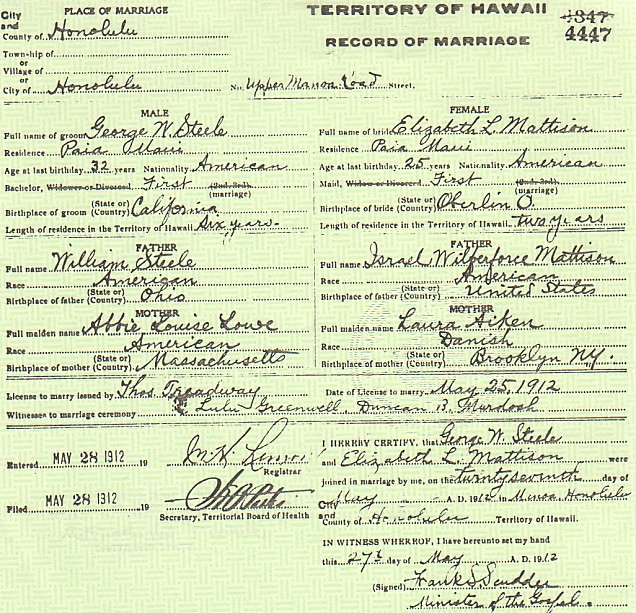 PLACE OF MARRIAGE
City and County of Honolulu
Town-ship of
or
Village of
or
City of Honolulu No. Upper Manoa Road Street.
TERRITORY OF HAWAII
RECORD OF MARRIAGE
4347
4447
MALE
Full name of groom George W. Steele
Residence Paia Maui
Age at last birthday 32 years Nationality American
Bachelor, Widower or Divorced First (2nd, 3rd) (marriage)
Birthplace of groom (State or Country) California
Length of residence in the Territory of Hawaii six years
FATHER
Full name William Steele
Race American
Birthplace of father (State or Country) Ohio
MOTHER
Full maiden name Abbie Louise Lowe
Race American
Birthplace of mother (State or Country) Massachusetts
FEMALE
Full name of bride Elizabeth L. Mattison
Residence Paia Maui
Age at last birthday 25 years Nationality American
Maid, Widow or Divorced First (2nd, 3rd) (marriage)
Birthplace of bride (State or Country) Oberlin O.
Length of residence in the Territory of Hawaii two years
FATHER
Full name Israel Wilberforce Mattison
Race American
Birthplace of father (State or Country) United States
MOTHER
Full maiden name Laura Aiken
Race Danish
Birthplace of mother (State or Country) Brooklyn N.Y.
License to marry issued by Thos Treadway Date of License to marry May 25, 1912
Witnesses to marriage ceremony Lulu Greenwell, Duncan B. Murdoch
Entered MAY 28 1912 19
Registrar
Filed MAY 28 1912 19
Secretary, Territorial Board of Health
I HEREBY CERTIFY, that George W. Steele
and Elizabeth L. Mattison were
joined in marriage by me, on the twenty seventh day of
May A. D. 1912 in Manoa, Honolulu
City and County of Honolulu Territory of Hawaii.
IN WITNESS WHEREOF, I have hereunto set my hand
this 27th day of May A. D. 1912
(Signed) Frank S. Scudder
Minister of the Gospel.